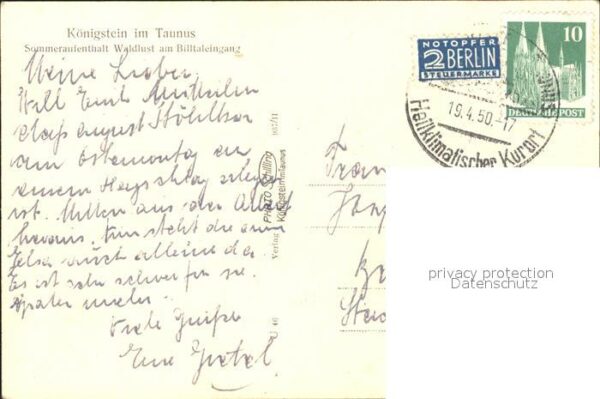 Königstein im Taunus
Sommeraufenthalt Waldlust am Billtaleingang
Meine Lieben,
Will Euch mitteilen
dass August Stöhltker
am Ostermontag an
einem Herzschlag
ist. Mitten aus der Arbeit
heraus. Nun steht die arme
Elsa auch alleine da.
Es ist sehr schwer für sie.
Später mehr.
Viele Grüße
Eure Gretel
Verlag PHOTO Schilling Königstein/Taunus 907/11
NOTOPFER
2 BERLIN
STEUERMARKE
10
DEUTSCHE POST
19.4.50.-17
Heilklimatischer Kurort
privacy protection
Datenschutz